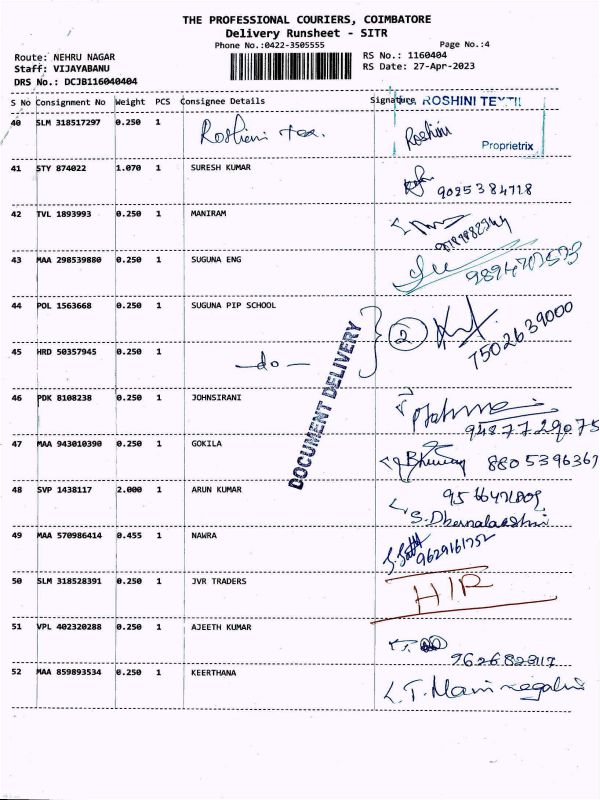 THE PROFESSIONAL COURIERS, COIMBATORE
Delivery Runsheet - SITR
Phone No.:0422-3505555 Page No.:4
Route: NEHRU NAGAR RS No.: 1160404
Staff: VIJAYABANU RS Date: 27-Apr-2023
DRS No.: DCJB116040404
S No Consignment No Weight PCS Consignee Details Signature
ROSHINI TEXTIL
40 SLM 318517297 0.250 1 Roshini tex. Roshini
Proprietrix
41 STY 874022 1.070 1 SURESH KUMAR
9025384718
42 TVL 1893993 0.250 1 MANIRAM
43 MAA 298539880 0.250 1 SUGUNA ENG
44 POL 1563668 0.250 1 SUGUNA PIP SCHOOL 2
7502639000
45 HRD 50357945 0.250 1 -do-
DOCUMENT DELIVERY
46 PDK 8108238 0.250 1 JOHNSIRANI
9487729075
47 MAA 943010390 0.250 1 GOKILA
8805396367
48 SVP 1438117 2.000 1 ARUN KUMAR
49 MAA 570986414 0.455 1 NAWRA
9629161752
50 SLM 318528391 0.250 1 JVR TRADERS
51 VPL 402320288 0.250 1 AJEETH KUMAR
52 MAA 859893534 0.250 1 KEERTHANA